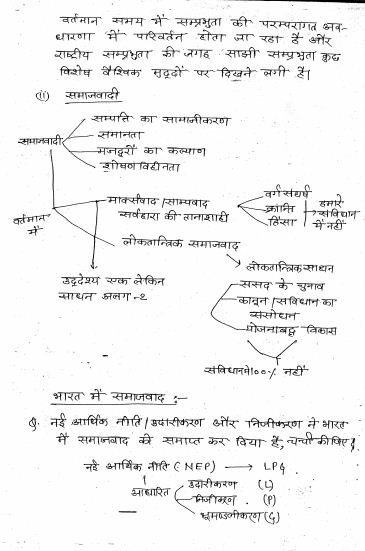 वर्तमान समय में सम्प्रभुता की परम्परागत अव-
धारणा में परिवर्तन होता जा रहा है और
राष्ट्रीय सम्प्रभुता की जगह साझी सम्प्रभुता कुछ
विशेष वैश्विक मुद्दों पर दिखने लगी है।
(ii) समाजवादी
सम्पत्ति का सामाजीकरण
समानता
समाजवादी
मजदूरों का कल्याण
शोषण विहीनता
मार्क्सवाद/साम्यवाद
सर्वहारा की तानाशाही
वर्ग संघर्ष
क्रान्ति
हिंसा
हमारे
संविधान
में नहीं
वर्तमान
में
लोकतान्त्रिक समाजवाद
लोकतान्त्रिक साधन
उद्देश्य एक लेकिन
साधन अलग-2
संसद के चुनाव
कानून/संविधान का
संसोधन
योजनाबद्ध विकास
संविधान में 100% नहीं
भारत में समाजवाद :-
Q. नई आर्थिक नीति/उदारीकरण और निजीकरण ने भारत
में समाजवाद को समाप्त कर दिया है, चर्चा कीजिए।
नई आर्थिक नीति (NEP) → LPG
आधारित
उदारीकरण (L)
निजीकरण (P)
भूमण्डलीकरण (G)